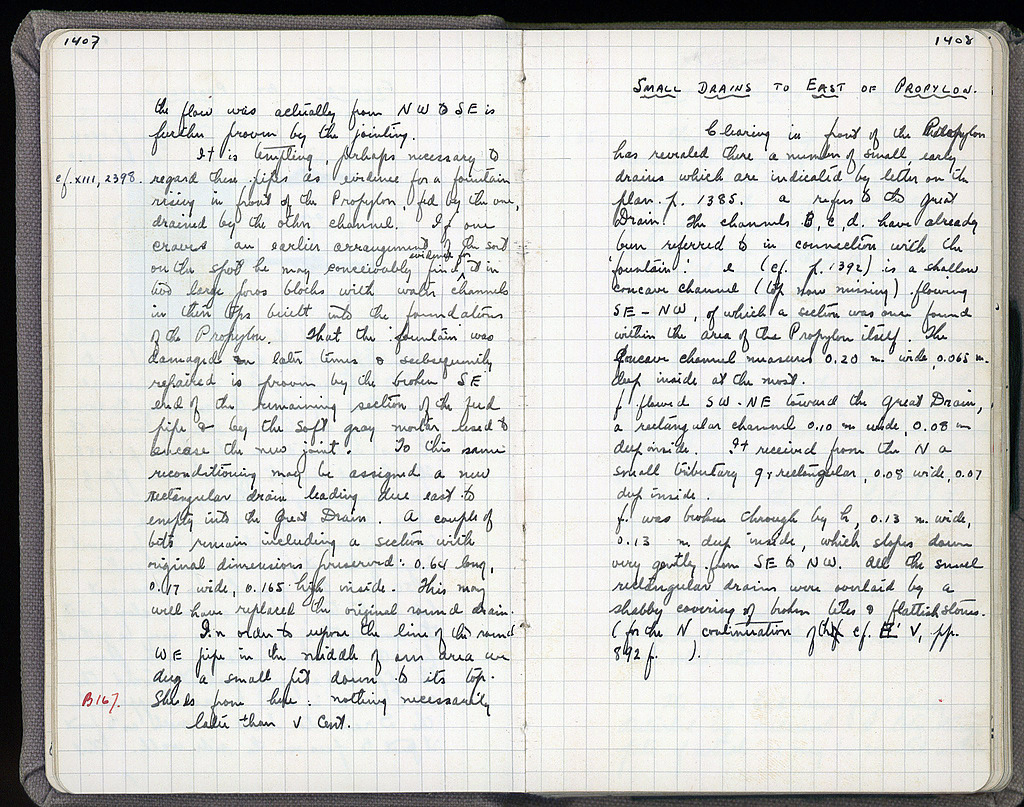 1407
the flow was actually from NW to SE is
further proven by the jointing.
It is tempting, perhaps necessary to
cf. XIII, 2398. regard these pipes as evidence for a fountain
rising in front of the Propylon, fed by the one,
drained by the other channel. If one
craves an earlier arrangement of the sort
on the spot he may conceivably find evidence for it in
two large poros blocks with water channels
in their tops built into the foundations
of the Propylon. That the fountain was
damaged in later times & subsequently
repaired is proven by the broken SE
end of the remaining section of the feed
pipe & by the soft gray mortar used to
encase the new joint. To this same
reconditioning may be assigned a new
rectangular drain leading due east to
empty into the Great Drain. A couple of
bits remain including a section with
original dimensions preserved: 0.64 long,
0.17 wide, 0.165 high inside. This may
well have replaced the original round drain.
In order to expose the line of the round
WE pipe in the middle of our area we
dug a small pit down to its top.
B167. Sherds from here: nothing necessarily
later than V Cent.
1408
SMALL DRAINS TO EAST OF PROPYLON.
Clearing in front of the Propylon
has revealed there a number of small, early
drains which are indicated by letter on the
plan. p. 1385. a refers to the Great
Drain. The channels b, c, d. have already
been referred to in connection with the
'fountain'. e (cf. p. 1392) is a shallow
concave channel (top now missing) flowing
SE - NW, of which a section was once found
within the area of the Propylon itself. The
concave channel measures 0.20 m. wide, 0.065 m.
deep inside at the most.
f flowed SW - NE toward the Great Drain,
a rectangular channel 0.10 m wide, 0.08 m
deep inside. It received from the N a
small tributary g, rectangular, 0.08 wide, 0.07
deep inside.
f. was broken through by h, 0.13 m. wide,
0.13 m. deep inside, which slopes down
very gently from SE to NW. All the small
rectangular drains were overlaid by a
shabby covering of broken tiles & flattish stones.
(for the N continuation of h cf. E' V, pp.
892 f. ).